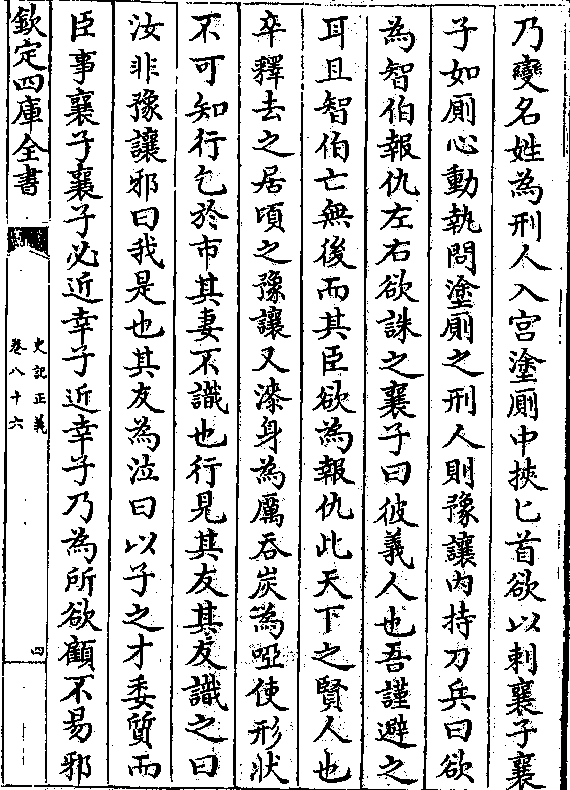 乃變名姓為刑人入宮塗廁中挾匕首欲以刺襄子襄
子如廁心動執問塗廁之刑人則豫讓內持刀兵曰欲
為智伯報仇左右欲誅之襄子曰彼義人也吾謹避之
耳且智伯亡無後而其臣欲為報仇此天下之賢人也
卒釋去之居頃之豫讓又漆身為厲吞炭為啞使形狀
不可知行乞於市其妻不識也行見其友其友識之曰
汝非豫讓邪曰我是也其友為泣曰以子之才委質而
臣事襄子襄子必近幸子近幸子乃為所欲顧不易邪
欽定四庫全書
史記正義
卷八十六
四